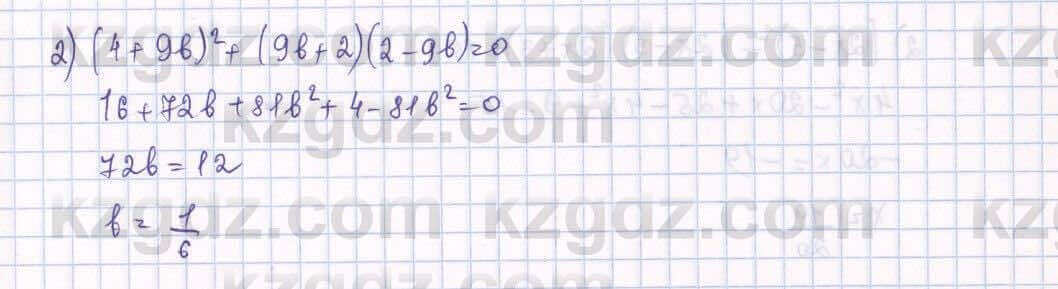 2) (4 + 9b)² + (9b + 2)(2 - 9b) = 0
16 + 72b + 81b² + 4 - 81b² = 0
72b = 12
b = 1/6
kzgdz.com kzgdz.com kz
kzgdz.com kzgdz.com
kzgdz.com kzgdz.com kz
kzgdz.com kzgdz.com